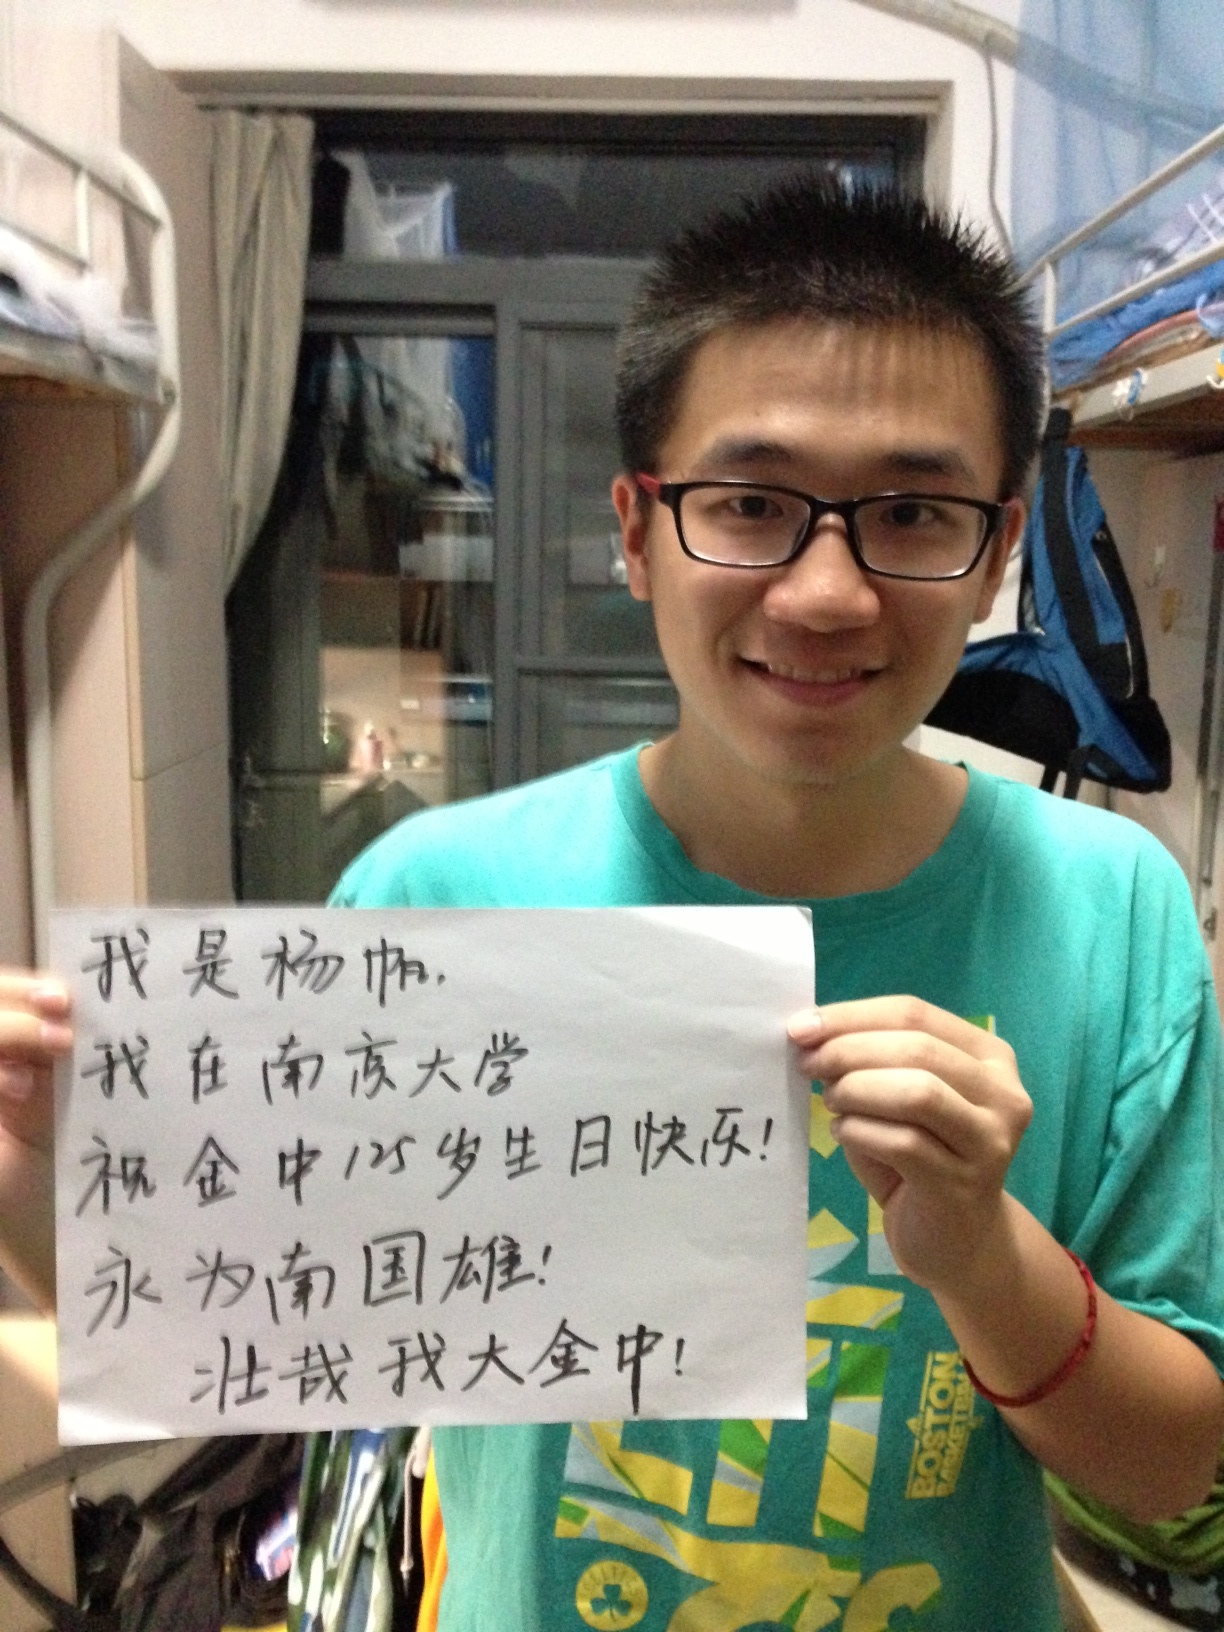 我是杨帆.
我在南京大学
祝金中125岁生日快乐!
永为南国雄!
壮哉我大金中!
BOSTON
BASKETBALL